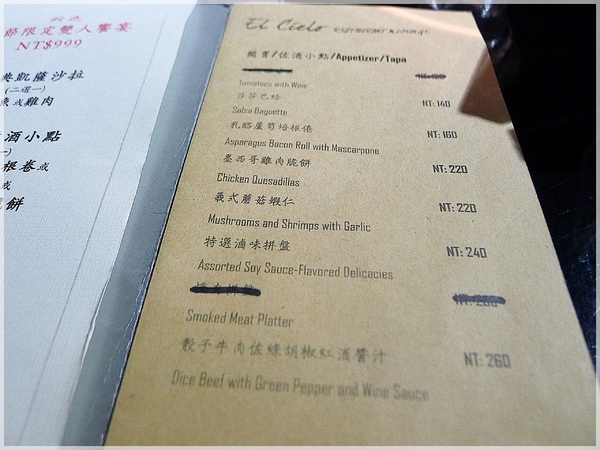 郎限定雙人饗宴
NT$999
典凱薩沙拉
(二選一)
或雞肉
酒小點
根卷或
或
餅
El Cielo RESTAURANT & LOUNGE
開胃/佐酒小點/Appetizer/Tapa
Tomatoes with Wine
莎莎巴給 NT: 140
Salsa Baguette
乳酪蘆筍培根倦 NT: 160
Asparagus Bacon Roll with Mascarpone
墨西哥雞肉脆餅 NT: 220
Chicken Quesadillas
義式蘑菇蝦仁 NT: 220
Mushrooms and Shrimps with Garlic
特選滷味拼盤 NT: 240
Assorted Soy Sauce-Flavored Delicacies
Smoked Meat Platter
骰子牛肉佐綠胡椒紅酒醬汁 NT: 260
Dice Beef with Green Pepper and Wine Sauce